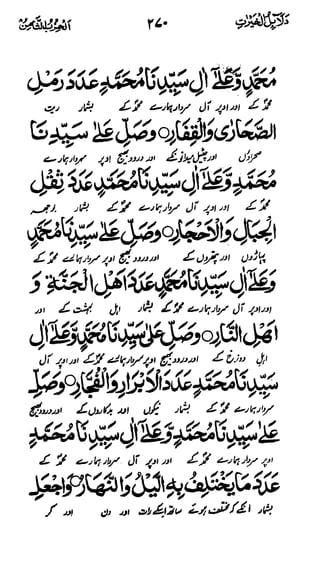 دلائل الخیرات ۲۷۰ الحزب الثامن
مُحَمَّدٍ وَّعَلٰۤى اٰلِ سَيِّدِنَا مُحَمَّدٍ عَدَدَ رَمْلِ
محمدؐ کے اور اوپر آل سردار ہمارے محمدؐ کے بشمار ریت
الصَّحَارٰى وَالْقِفَارِ ○ وَصَلِّ عَلٰى سَيِّدِنَا
صحراؤں اور چٹیل میدانوں کے اور درود بھیج اوپر سردار ہمارے
مُحَمَّدٍ وَّعَلٰۤى اٰلِ سَيِّدِنَا مُحَمَّدٍ عَدَدَ ثِقْلِ
محمدؐ کے اور اوپر آل سردار ہمارے محمدؐ کے بشمار بوجھ
الْجِبَالِ وَالْاَحْجَارِ ○ وَصَلِّ عَلٰى سَيِّدِنَا مُحَمَّدٍ
پہاڑوں اور پتھروں کے اور درود بھیج اوپر سردار ہمارے محمدؐ کے
وَّعَلٰۤى اٰلِ سَيِّدِنَا مُحَمَّدٍ عَدَدَ اَهْلِ الْجَنَّةِ وَ
اور اوپر آل سردار ہمارے محمدؐ کے بشمار اہل بہشت کے اور
اَهْلِ النَّارِ ○ وَصَلِّ عَلٰى سَيِّدِنَا مُحَمَّدٍ وَّعَلٰۤى اٰلِ
اہل دوزخ کے اور درود بھیج اوپر سردار ہمارے محمدؐ کے اور اوپر آل
سَيِّدِنَا مُحَمَّدٍ عَدَدَ الْاَبْرَارِ وَالْفُجَّارِ ○ وَصَلِّ
سردار ہمارے محمدؐ کے بشمار نیکوں اور بدکاروں کے اور درود بھیج
عَلٰى سَيِّدِنَا مُحَمَّدٍ وَّعَلٰۤى اٰلِ سَيِّدِنَا مُحَمَّدٍ
اوپر سردار ہمارے محمدؐ کے اور اوپر آل سردار ہمارے محمدؐ کے
عَدَدَ مَا يَخْتَلِفُ بِهِ الَّيْلُ وَالنَّهَارُ ○ وَاجْعَلِ
بشمار اسکے کہ مختلف ہوتے ساتھ اسکے رات اور دن اور کر